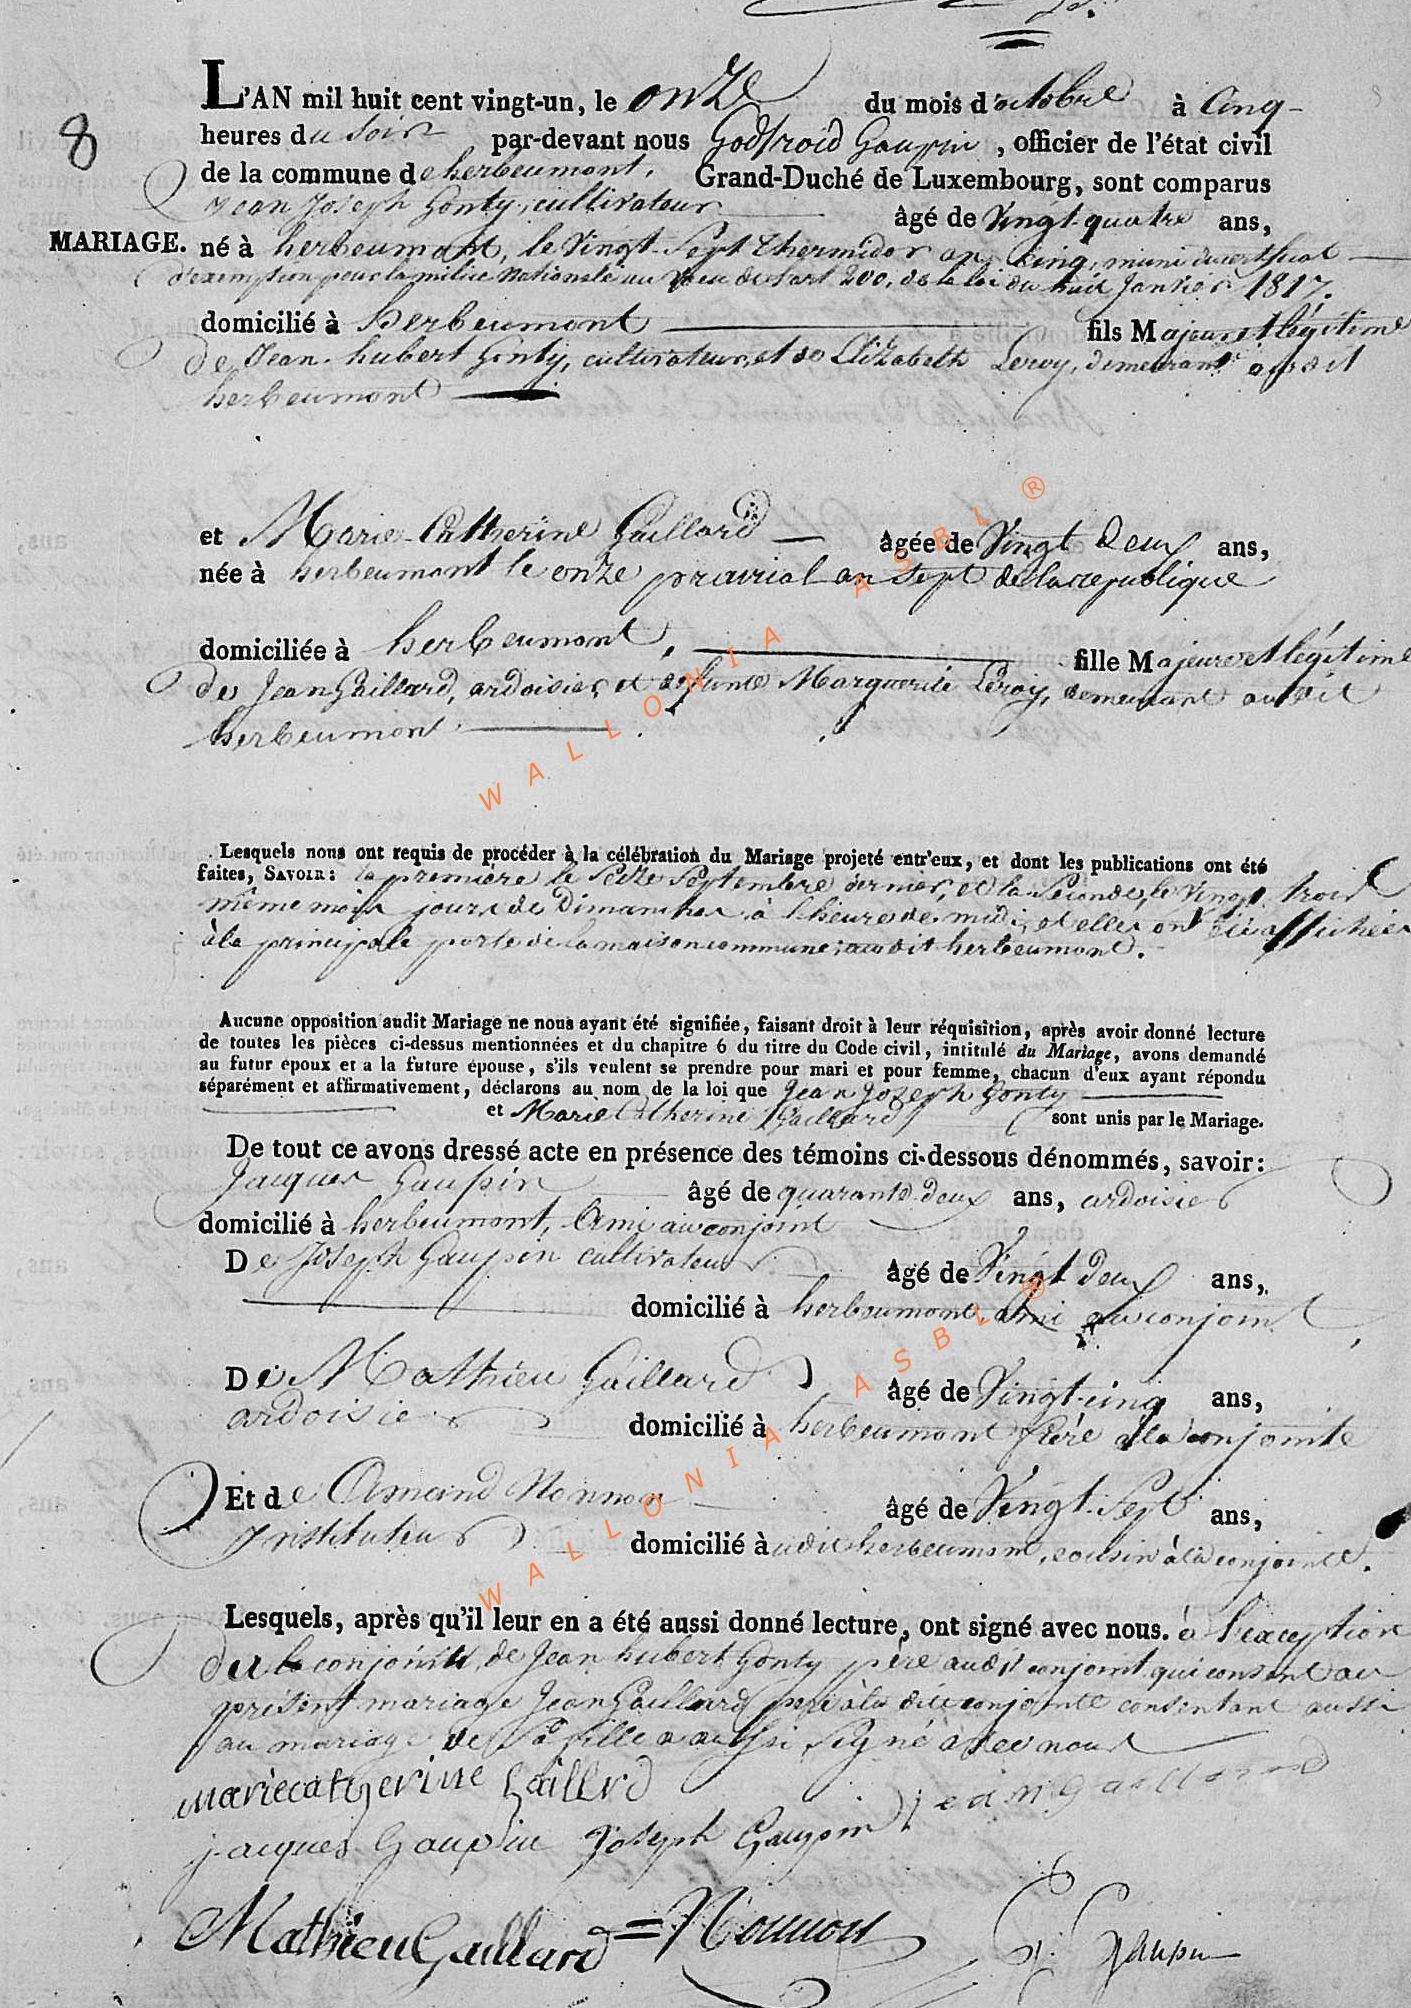 8
L'AN mil huit cent vingt-un, le onze du mois d'octobre à Cinq
heures du soir par-devant nous Godfroid Gaupin, officier de l'état civil
de la commune de herbeumont, Grand-Duché de Luxembourg, sont comparus
Jean Joseph Gonty, cultivateur âgé de Vingt-quatre ans,
MARIAGE. né à herbeumont, le Vingt-Sept thermidor an Cinq, muni du certificat
d'exemption pour la milice Nationale au Voeu de l'art 200, de la loi du huit Janvier 1817.
domicilié à herbeumont fils Majeur et légitime
de Jean-hubert Gonty, cultivateur, et de Elizabeth Leroy, demeurant audit
herbeumont
et Marie-Catherine Gaillard âgée de Vingt Deux ans,
née à herbeumont le onze prairial an Sept de la republique
domiciliée à herbeumont, fille Majeure et légitime
de Jean Gaillard, ardoisier et defunte Marguerite Leroy, demeurant au dit
herbeumont.
Lesquels nous ont requis de procéder à la célébration du Mariage projeté entr'eux, et dont les publications ont été
faites, SAVOIR: la première le Seize Septembre dernier, et la Seconde, le Vingt trois
même mois jours de Dimanches à l'heure de midi, et elles ont été affichées
à la principale porte de la maison commune, audit herbeumont.
Aucune opposition audit Mariage ne nous ayant été signifiée, faisant droit à leur réquisition, après avoir donné lecture
de toutes les pièces ci-dessus mentionnées et du chapitre 6 du titre du Code civil, intitulé du Mariage, avons demandé
au futur époux et a la future épouse, s'ils veulent se prendre pour mari et pour femme, chacun d'eux ayant répondu
séparément et affirmativement, déclarons au nom de la loi que Jean Joseph Gonty
et Marie Catherine Gaillard sont unis par le Mariage.
De tout ce avons dressé acte en présence des témoins ci-dessous dénommés, savoir:
Jacques Gaupin âgé de quarante-deux ans, ardoisier
domicilié à herbeumont, Ami au conjoint
De Joseph Gaupin cultivateur âgé de Vingt deux ans,
domicilié à herbeumont, ami au conjoint
De Mathieu Gaillard âgé de Vingt-cinq ans,
ardoisier domicilié à herbeumont frère à la conjointe
Et de Amand Nonnon âgé de Vingt-Sept ans,
Instituteur domicilié audit herbeumont, cousin à la conjointe.
Lesquels, après qu'il leur en a été aussi donné lecture, ont signé avec nous. à l'exception
du conjoint, de Jean hubert Gonty père audit conjoint, qui consent au
présent mariage Jean Gaillard père à la dite conjointe consentant aussi
au mariage de Sa fille a aussi Signé avec nous
marie catherine Gaillrd
jean gaillard
jacques Gaupin Joseph Gaupin
Mathieu Gaillard Nonnon G. Gaupin
WALLONIA ASBL ®
WALLONIA ASBL ®